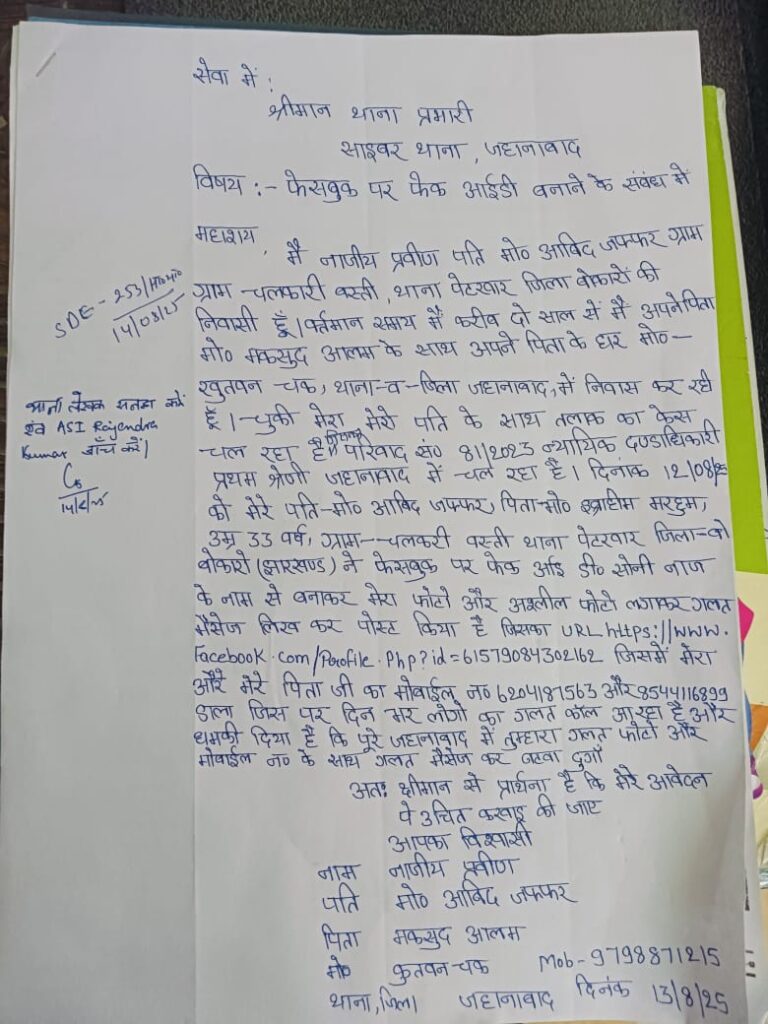 सेवा में :
श्रीमान थाना प्रभारी
साइबर थाना, जहानाबाद
विषय :- फेसबुक पर फेक आईडी बनाने के संबंध में
महाशय,
मैं नाजीय प्रवीण पति मो० आबिद जफ्फर ग्राम
ग्राम - चलकारी वस्ती, थाना पेटरवार जिला बोकारो की
निवासी हूँ। वर्तमान समय में करीब दो साल से मैं अपने पिता
मो० मकसुद आलम के साथ अपने पिता के घर मो० -
खुतवन चक, थाना-व-जिला जहानाबाद, में निवास कर रही
हूँ। चुकी मेरा मेरे पति के साथ तलाक का केस
चल रहा है। परिवाद सं० 811/2023 न्यायिक दण्डाधिकारी
प्रथम श्रेणी जहानाबाद में चल रहा है। दिनांक 12/08/25
को मेरे पति - मो० आबिद जफ्फर, पिता - मो० इब्राहीम मरहुम,
उम्र 33 वर्ष, ग्राम - चलकरी वस्ती थाना पेटरवार जिला = बो
बोकारो (झारखण्ड) ने फेसबुक पर फेक आई डी० सोनी नाज
के नाम से बनाकर मेरा फोटो और अश्लील फोटो लगाकर गलत
मैसेज लिख कर पोस्ट किया है जिसका URL https://www.
Facebook.com/Profile.Php?id=61579084302162 जिसमें मेरा
और मेरे पिता जी का मोबाईल न० 6204187563 और 8544116899
डाला जिस पर दिन भर लोगो का गलत कॉल आ रहा है और
धमकी दिया है कि पूरे जहानाबाद में तुम्हारा गलत फोटो और
मोबाईल न० के साथ गलत मैसेज कर बटवा दुगाँ
अतः श्रीमान से प्रार्थना है कि मेरे आवेदन
पे उचित करवाइ की जाए
आपका विश्वासी
नाम नाजीय प्रवीण
पति मो० आबिद जफ्फर
पिता मकसुद आलम
मो० कुतवन-चक Mob-9798871215
थाना, जिला जहानाबाद दिनांक 13/8/25
SDE - 253/
14/08/25
थाना लेखक सनहा करें
एवं ASI Rajendra
Kumar जाँच करें।
14/8/25